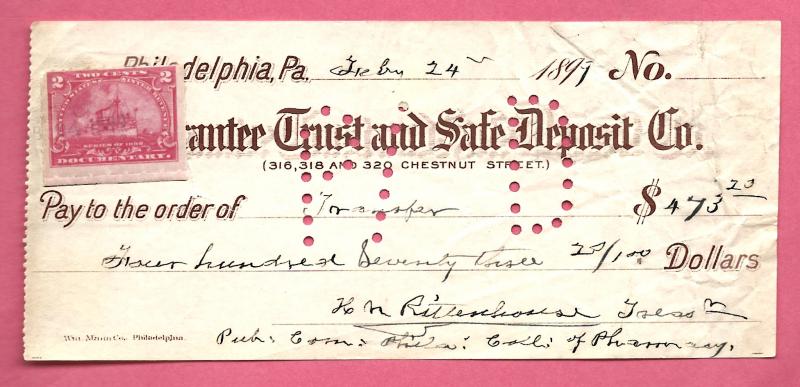 Philadelphia, Pa. Feby 24 1899 No.
2 TWO CENTS 2
SERIES OF 1898
DOCUMENTARY.
rantee Trust and Safe Deposit Co.
(316, 318 AND 320 CHESTNUT STREET.)
Pay to the order of Transfer $ 473 23
Four hundred Seventy three 23/100 Dollars
H N Rittenhouse Treas
Wm. Mann Co., Philadelphia.
Pub: Com: Phila: Coll: of Pharmacy.